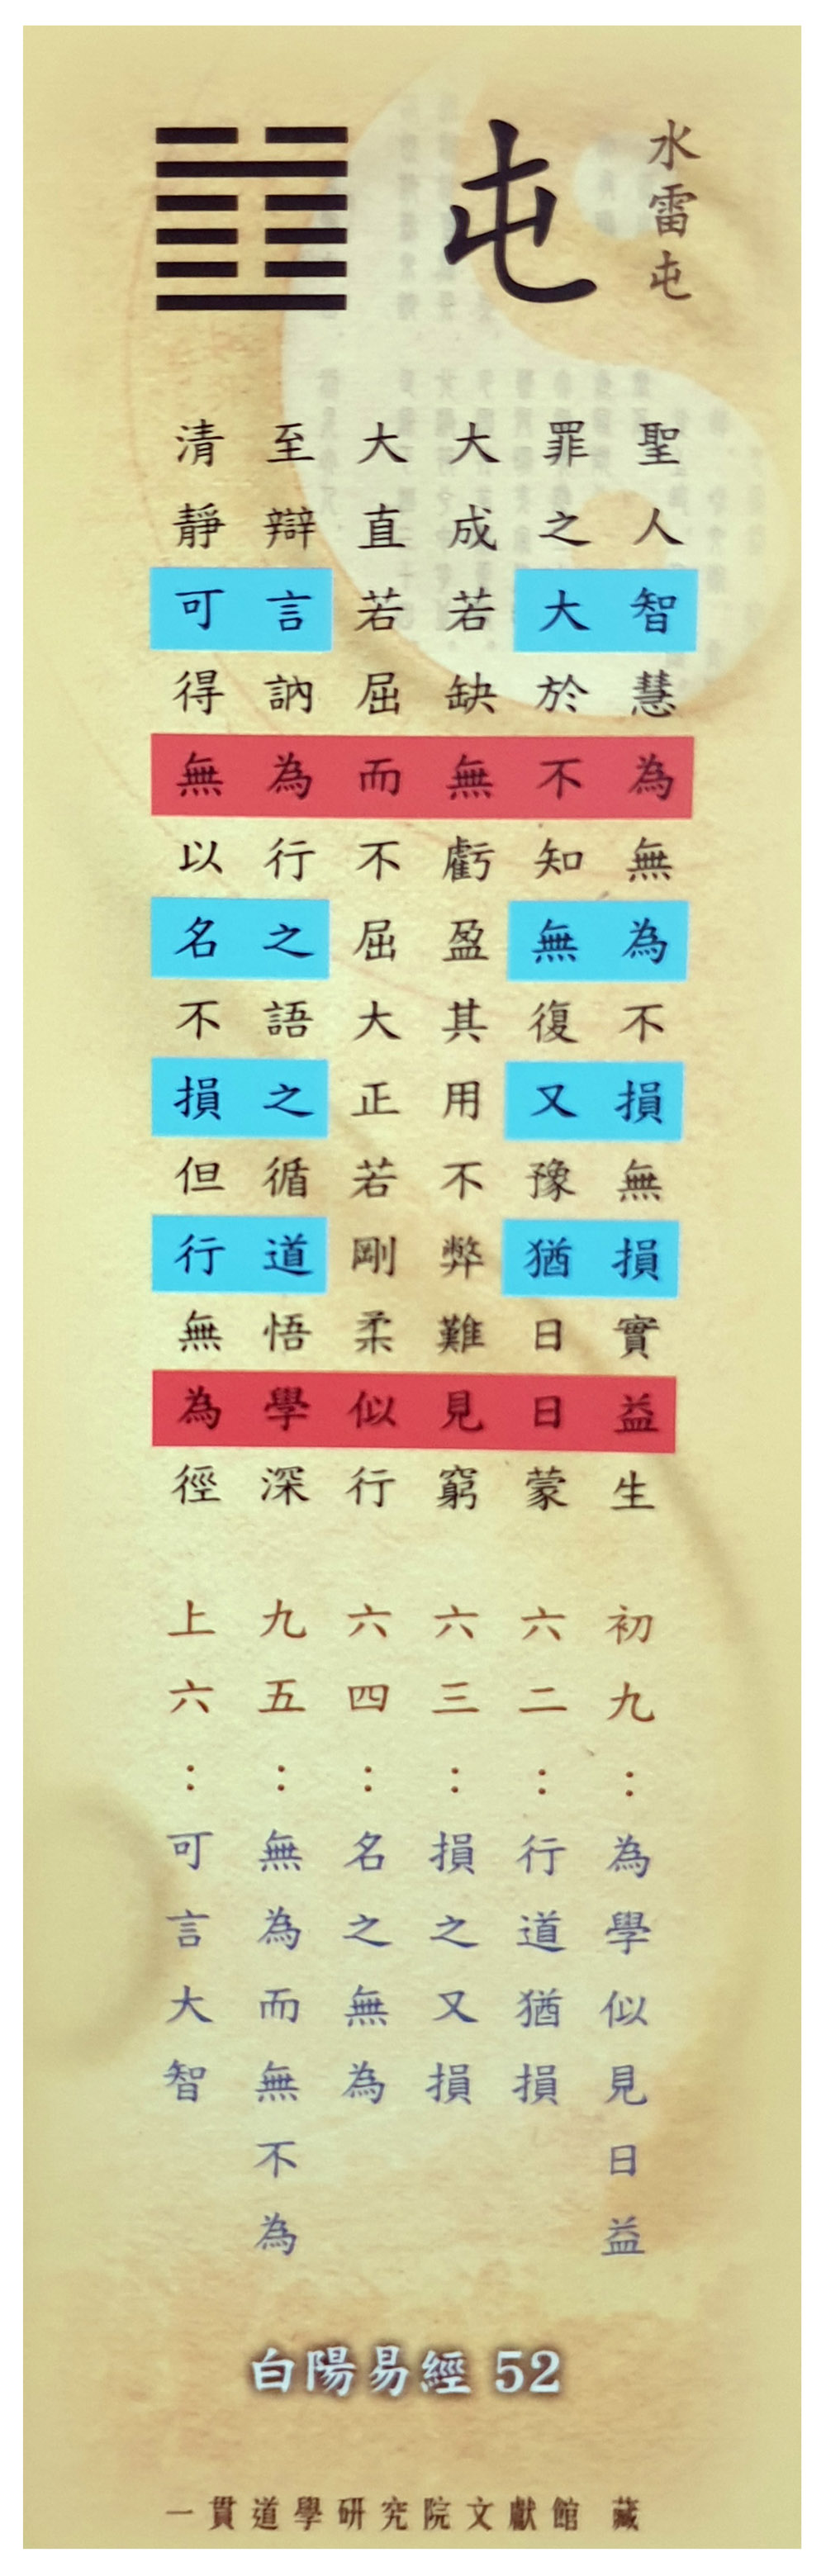 水雷屯
屯
聖人智慧為無為不損無損實益生
罪之大於不知無復又豫猶日日蒙
大成若缺無虧盈其用不弊難見窮
大直若屈而不屈大正若剛柔似行
至辯言訥為行之語之循道悟學深
清靜可得無以名不損但行無為徑
初九：為學似見日益
六二：行道猶損
六三：損之又損
六四：名之無為
九五：無為而無不為
上六：可言大智
白陽易經 52
一貫道學研究院文獻館 藏